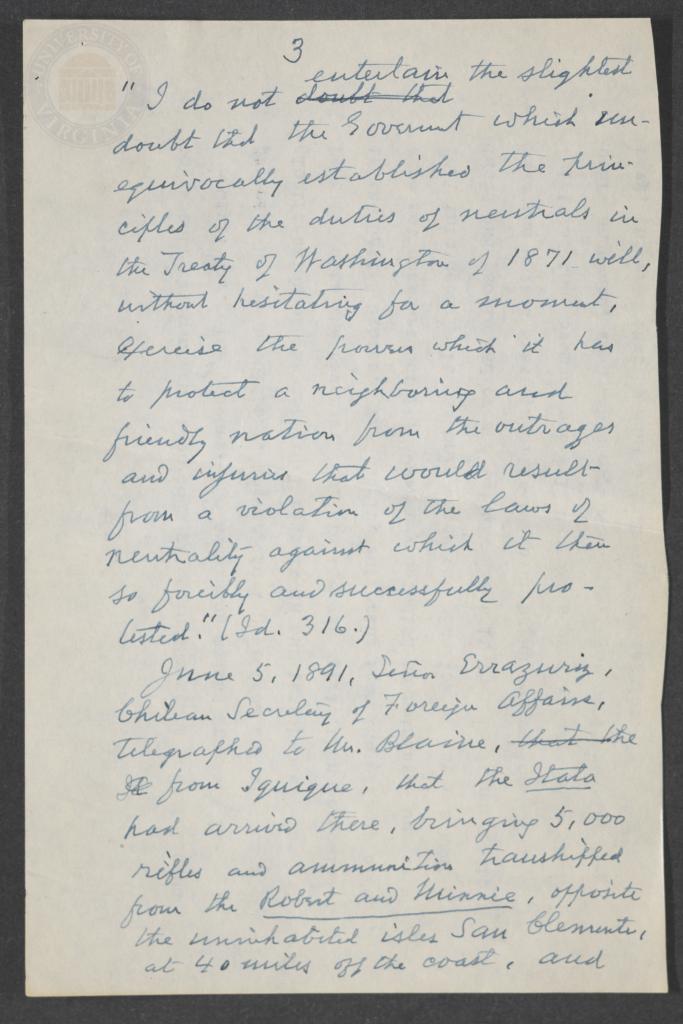 UNIVERSITY OF VIRGINIA
3
entertain the slightest
" I do not doubt that
doubt that the Governmt which un-
equivocally established the prin-
ciples of the duties of neutrals in
the Treaty of Washington of 1871 will,
without hesitating for a moment,
exercise the powers which it has
to protect a neighboring and
friendly nation from the outrages
and injuries that would result
from a violation of the laws of
neutrality against which it then
so forcibly and successfully pro-
tested." (Id. 316.)
June 5, 1891, Señor Errazuriz,
Chilean Secretary of Foreign Affairs,
telegraphed to Mr. Blaine, that the
from Iquique, that the Itata
had arrived there, bringing 5,000
rifles and ammunition transhipped
from the Robert and Minnie, opposite
the uninhabited isles San Clemente,
at 40 miles off the coast, and